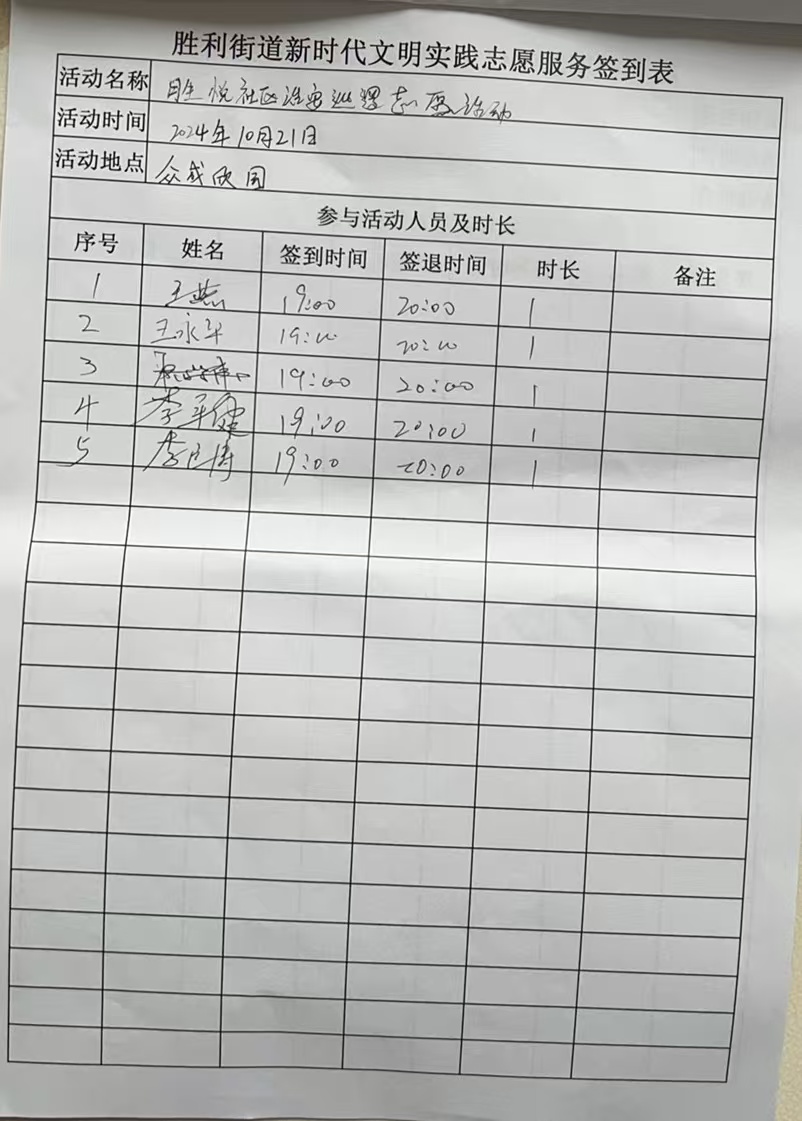 胜利街道新时代文明实践志愿服务签到表
活动名称 胜悦社区治安巡逻志愿活动
活动时间 2024年10月21日
活动地点 众成欣园
参与活动人员及时长
序号 姓名 签到时间 签退时间 时长 备注
1 王燕 19:00 20:00 1
2 王永军 19:00 20:00 1
3 19:00 20:00 1
4 李军健 19:00 20:00 1
5 李 涛 19:00 20:00 1